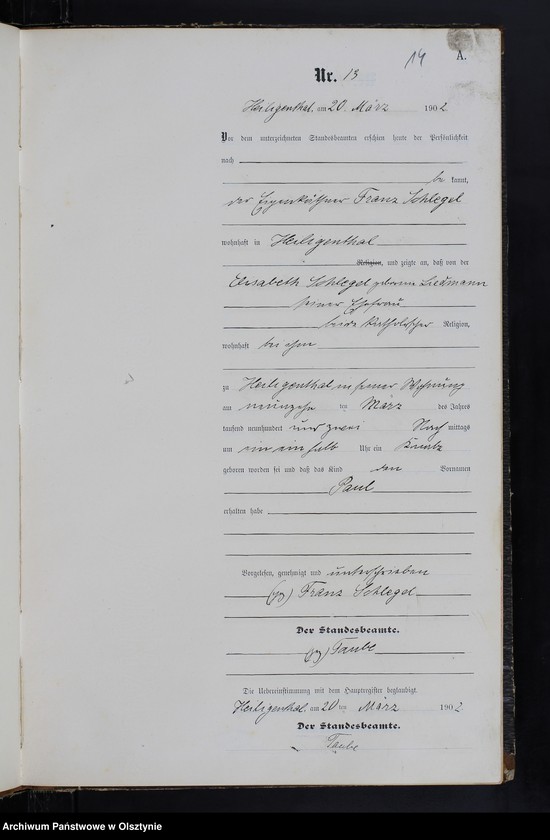 14
A.
Nr. 13
Heiligenthal, am 20. März 1902
Vor dem unterzeichneten Standesbeamten erschien heute der Persönlichkeit
nach
be kannt,
der Eigenkäthner Franz Schlegel
wohnhaft in Heiligenthal
Religion, und zeigte an, daß von der
Elisabeth Schlegel geborene Liedmann
seiner Ehefrau
beide katholischer Religion,
wohnhaft bei ihm
zu Heiligenthal in seiner Wohnung
am neunzehn ten März des Jahres
tausend neunhundert und zwei Nach mittags
um ein ein halb Uhr ein Knabe
geboren worden sei und daß das Kind den Vornamen
Paul
erhalten habe
Vorgelesen, genehmigt und unterschrieben
(gz) Franz Schlegel
Der Standesbeamte.
(gz) Taube
Die Uebereinstimmung mit dem Hauptregister beglaubigt.
Heiligenthal, am 20 ten März 1902
Der Standesbeamte.
Taube
Archiwum Państwowe w Olsztynie